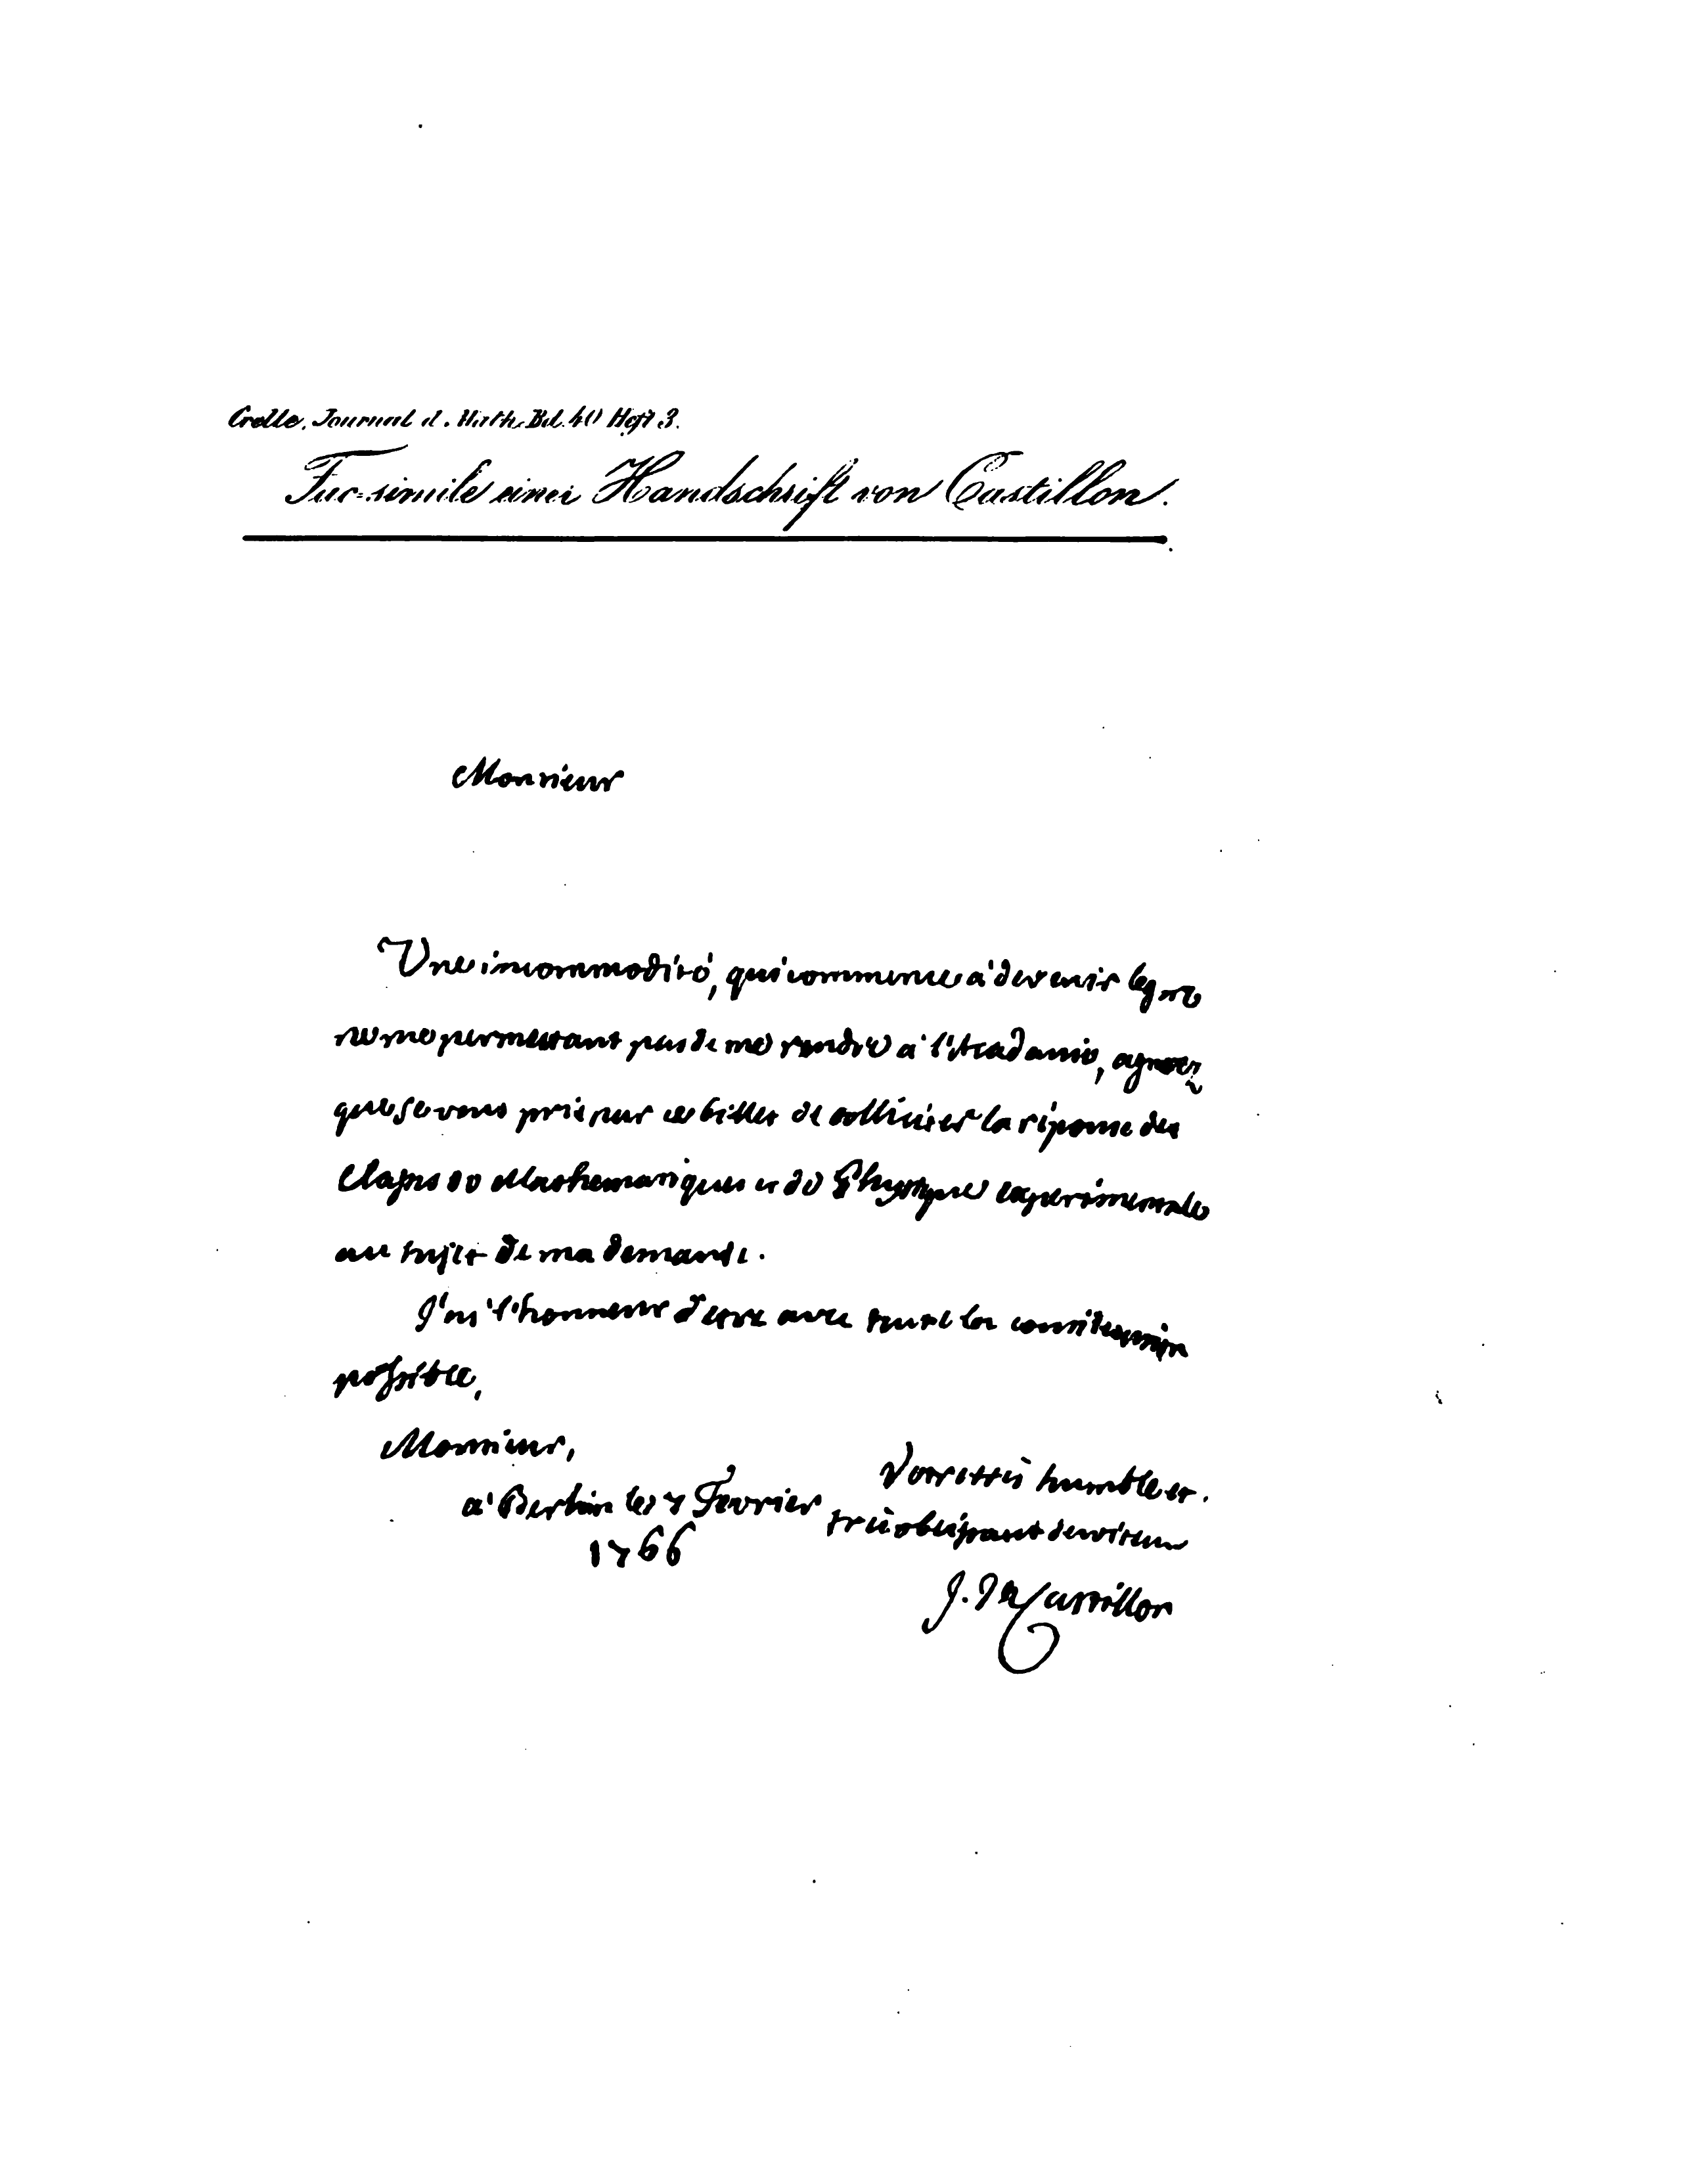 Crelle. Journal d. Math. Bd. 40 Heft 3.
Fac-simile einer Handschrift von Castillon.
Monsieur
Une incommodité, qui commence à devenir
ne me permettant pas de me rendre à l'Academie, agréez
que je vous prie par ce billet de solliciter la réponse des
Classes de Mathematiques et de Physique experimentale
au sujet de ma demande.
J'ai l'honneur d'etre avec toute la consideration
possible,
Monsieur,
Votre très humble et
à Berlin le 7 Fevrier
très obeissant serviteur
1766
J. de Castillon